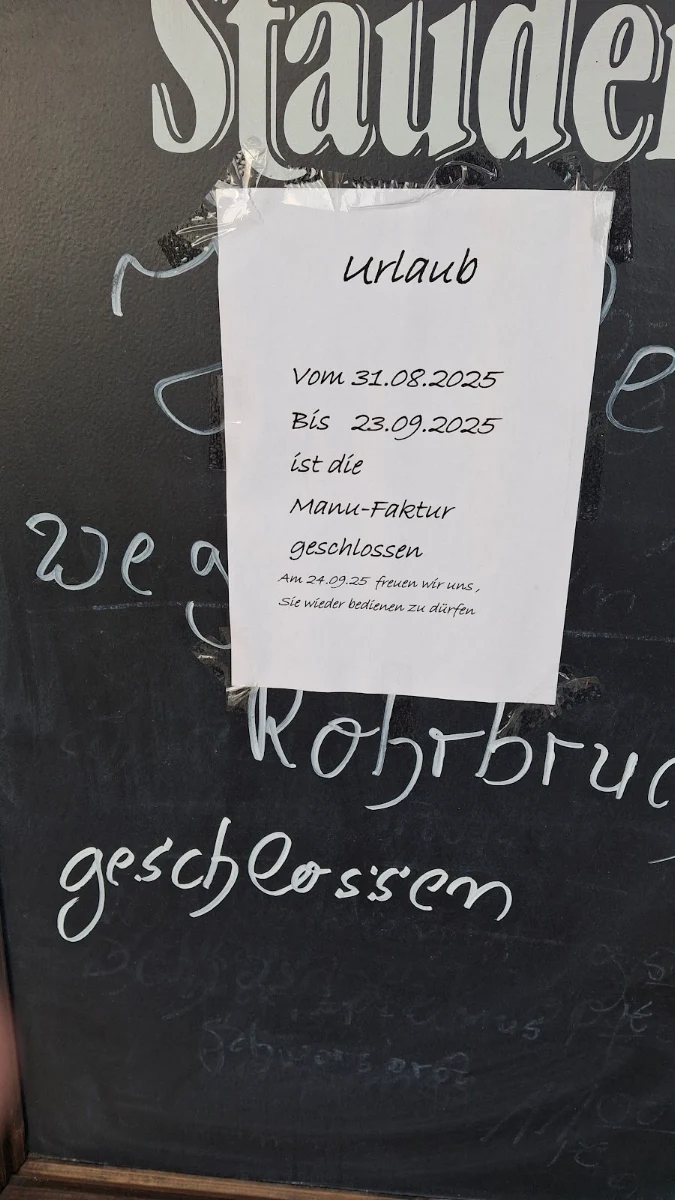 Stauder
Urlaub
Vom 31.08.2025
Bis 23.09.2025
ist die
Manu-Faktur
geschlossen
Am 24.09.25 freuen wir uns,
Sie wieder bedienen zu dürfen
weg
Rohrbruc
geschlossen